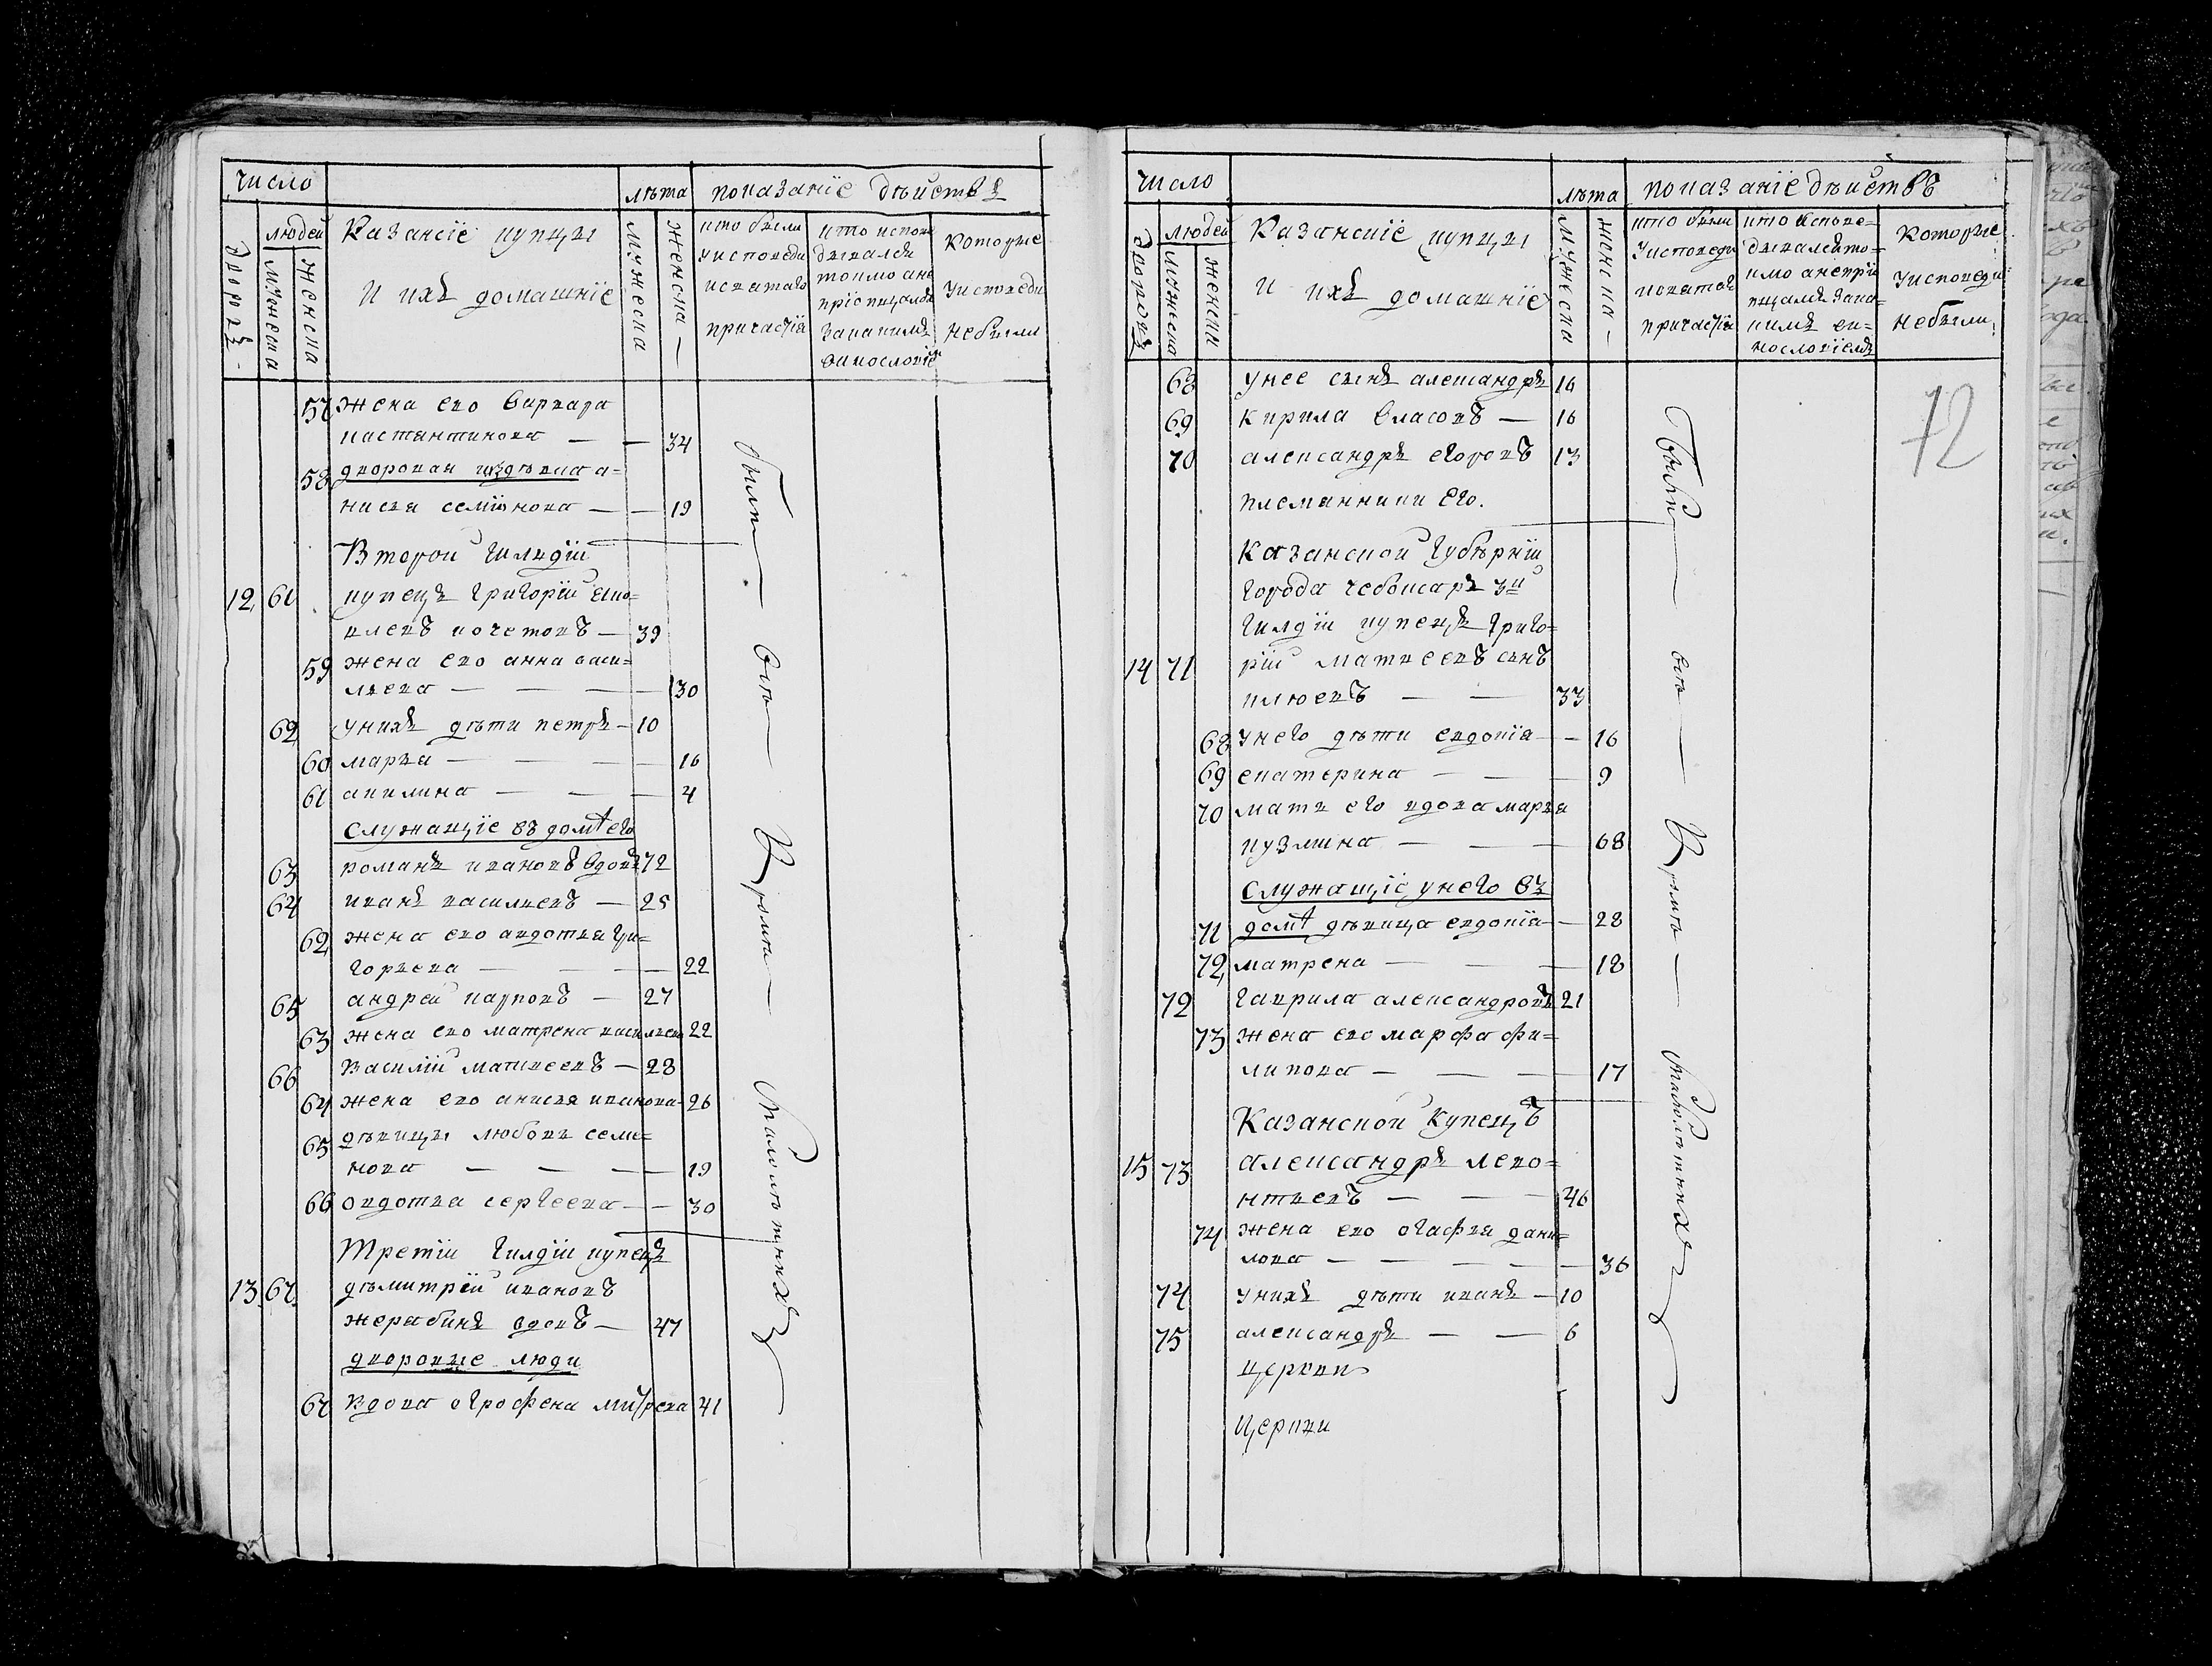 число
лѣта показанїе дѣиствъ
дворовъ
людей
мужеска
женска
Казанскїе купцы
и ихъ домашнїе
мужеска
женска —
кто были
у исповеди
и святаго
причастїя
кто испове
дывался
токмо а не
прїобщался
за какимъ
винословїе
которые
у исповеди
не были
57 жена ево варвара
костянтинова — — 34
58 дворовая их девка а=
нисья семïонова — — 19
Второй гилдїи
12 61 купецъ григорїй яко=
влевъ кочетовъ — 39
59 жена ево анна васи=
льева — — — — 30
62 у нихъ дѣти петръ — 10
60 марья — — — — 16
61 акилина — — — 4
служащїе въ домѣ его
63 романъ ивановъ вдовъ 72
64 иванъ васильевъ — 25
62 жена ево авдотья гри=
горьева — — — 22
65 андрей карповъ — 27
63 жена ево матрена васильева 22
66 василїй матвеевъ — 28
64 жена ево анисья иванова 26
65 девицы любовь семе=
нова — — — — 19
66 овдотья сергеева — — 30
Третїй гилдїи купецъ
13 67 дѣмитрїй ивановъ
жерабинъ вдовъ — 47
дворовые люди
67 вдова огрофена 41
были — все — Кромѣ — малолѣтнихъ
число
лѣта показанїе дѣиствъ
дворовъ
людей
мужеска
женски
Казанскїе купцы
и ихъ домашнїе
мужеска
женска —
кто были
у исповеди
и святаго
причастїя
кто испове=
дывался то=
кмо а не прї
общался за ка=
кимъ ви=
нословїемъ
которые
у исповеди=
не были.
72
68 у нее сынъ александръ 16
69 кирила власовъ — 16
70 александръ егоровъ 13
племянники его.
Казанской губѣрнїи
города чебоксаръ 3й
гилдїи купецъ григо=
14 71 рїй матвеевъ сынъ
клюевъ — — 33
68 у него дѣти евдокïя — — 16
69 екатерина — — — 9
70 мать его вдова марья
кузмина — — — 68
служащїе у него въ
71 домѣ дѣвица евдокïя — 28
72 матрена — — — 18
72 гаврила александровъ 21
73 жена ево марфа фи=
липова — — — 17
Казанской купецъ
15 73 александръ лево=
нтьевъ — — — 46
74 жена ево огафья дани=
лова — — — — 36
74 у нихъ дѣти иванъ — 10
75 александръ — — 6
церкви
церкви
были — все — Кромѣ — малолѣтнихъ